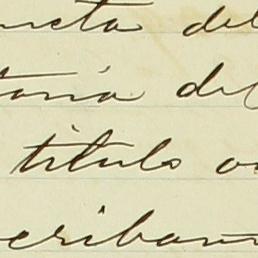 ncta del
taria del
titulo o
scriban